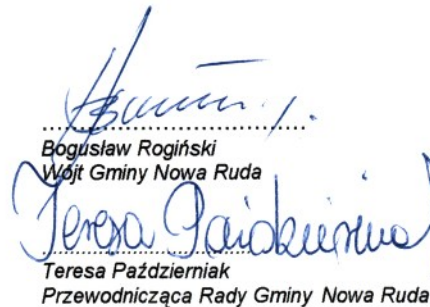 Bogusław Rogiński
Wójt Gminy Nowa Ruda
Teresa Październiak
Teresa Październiak
Przewodnicząca Rady Gminy Nowa Ruda